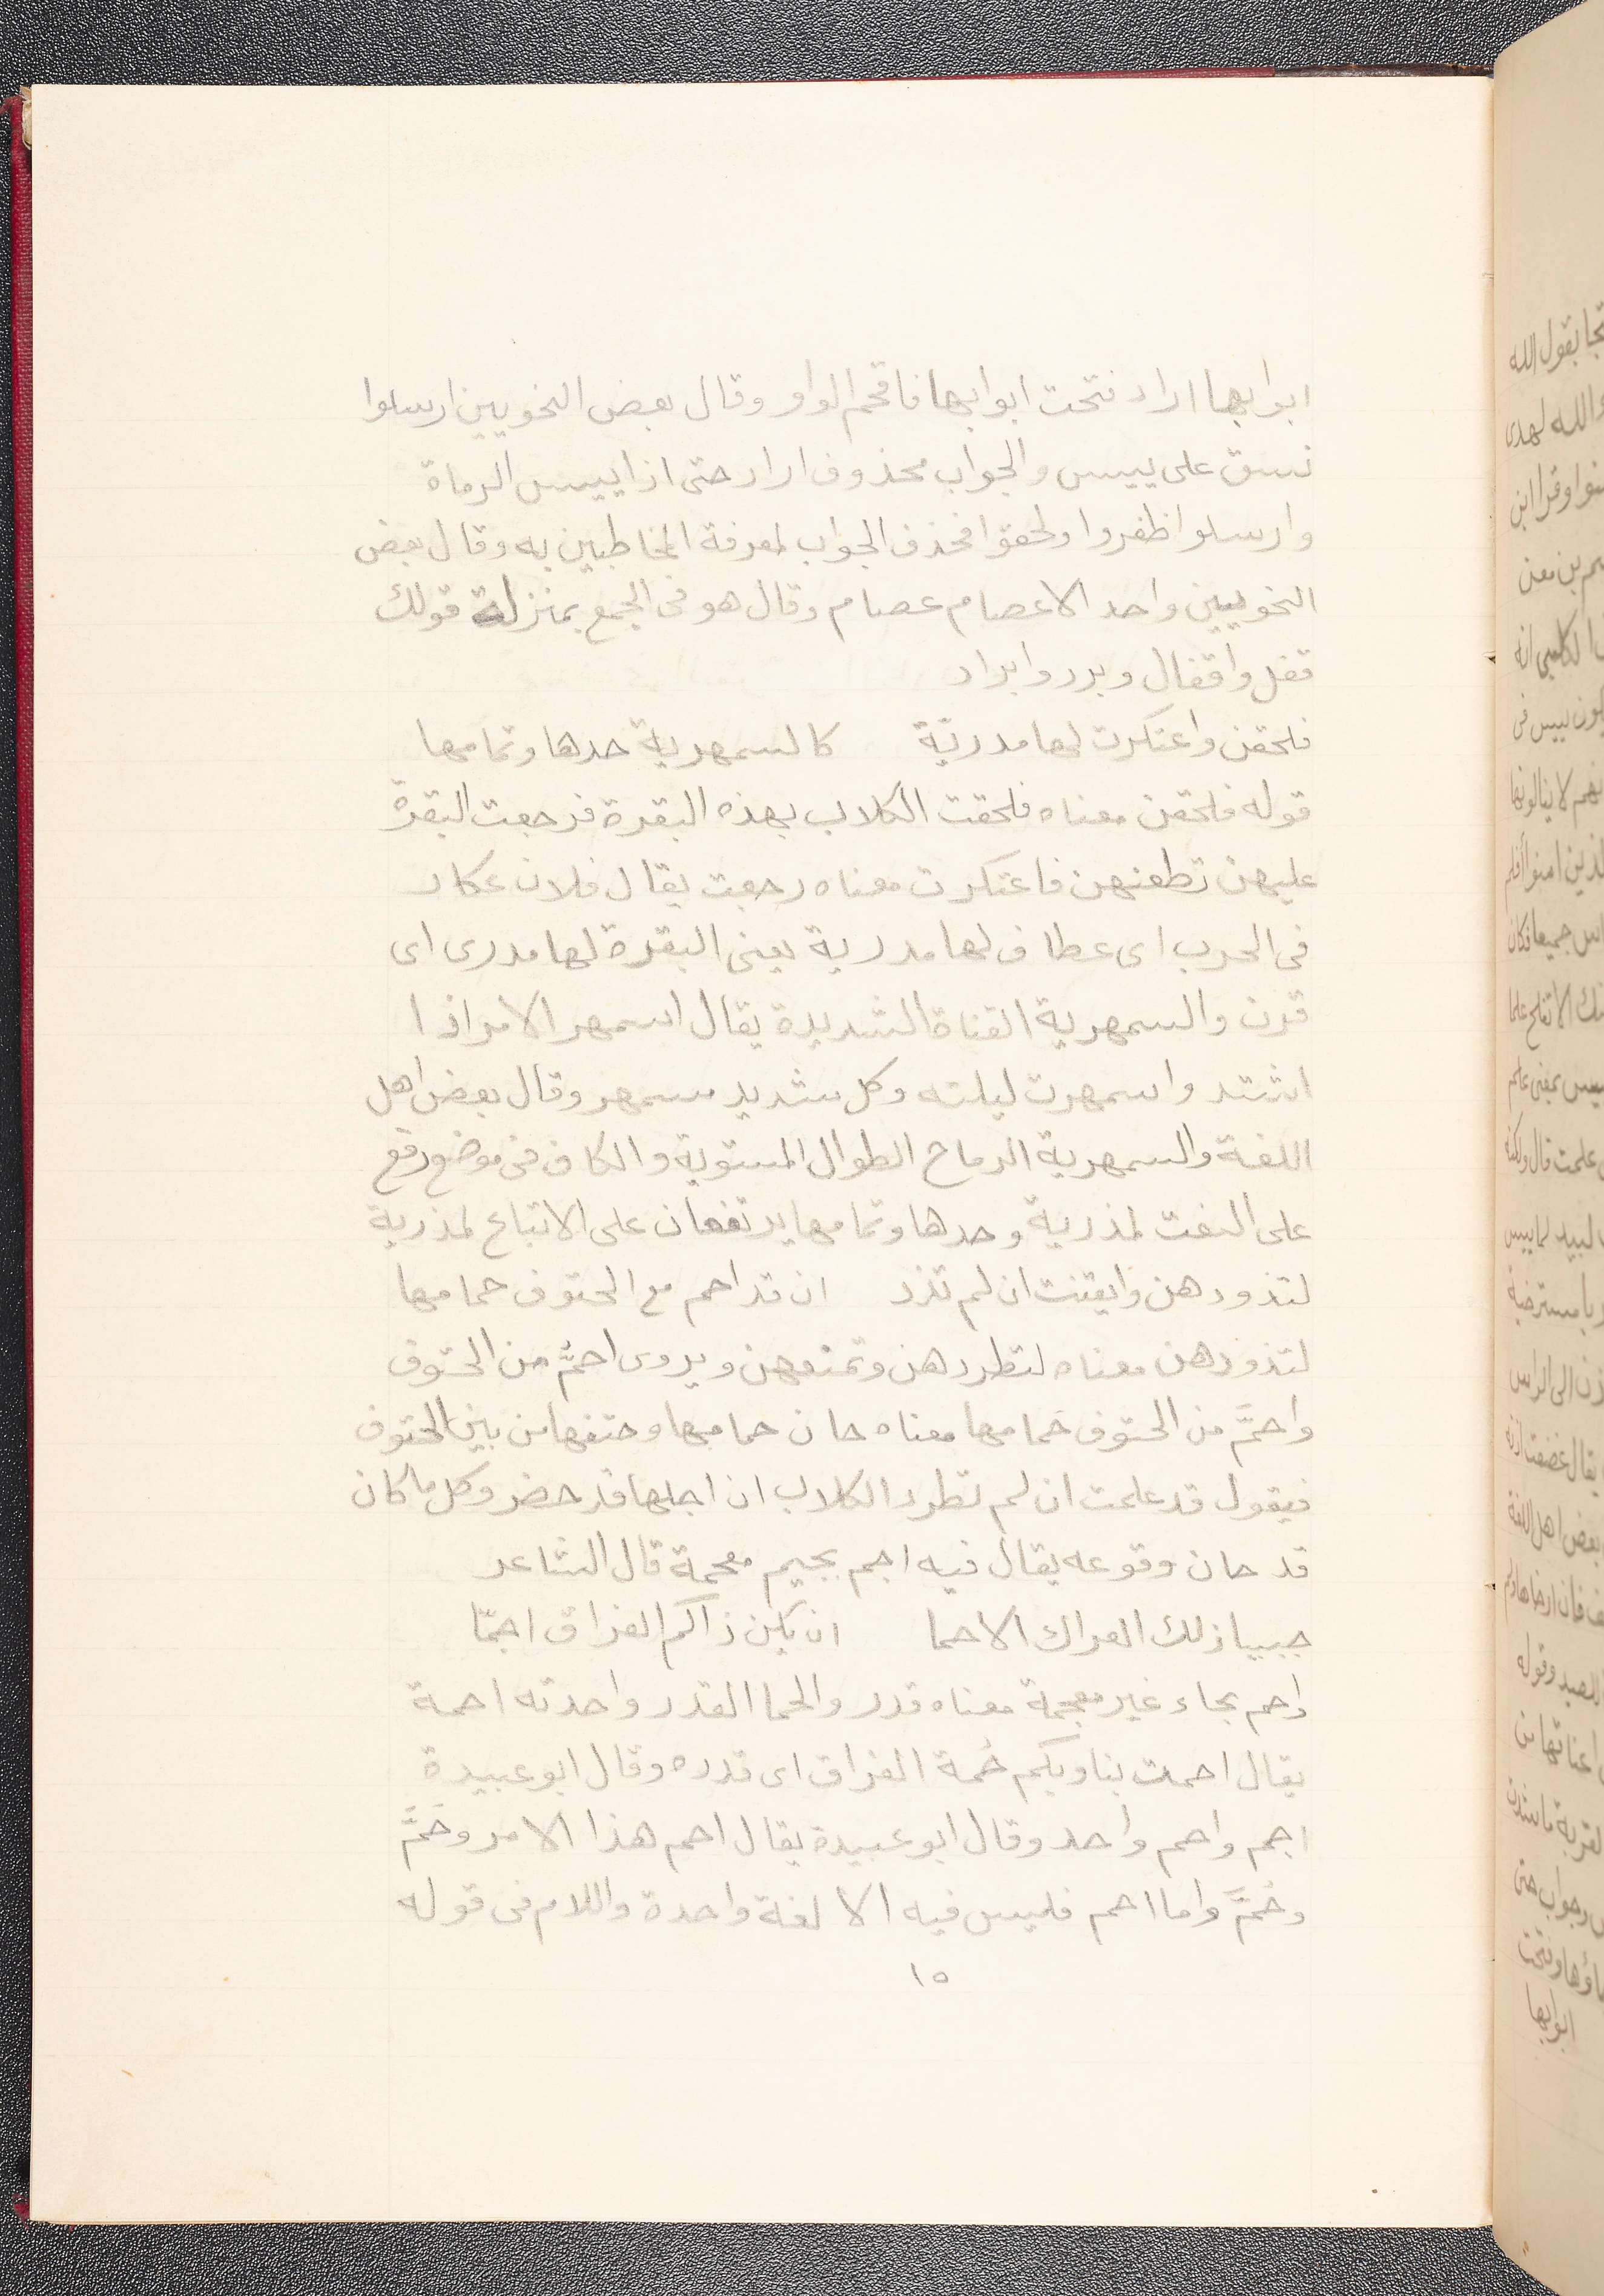 ابوابها اراد فتحت ابوابها فاقحم الواو وقال بعض النحويين ارسلوا
نسق على ييبس والجواب محذوف اراد حتى اذا ييبس الرماة
وارسلوا ظفروا ولحقوا فحذف الجواب لمعرفة المخاطبين به وقال بعض
النحويين واحد الاعصام عصام وقال هو فى الجمع بمنزلة قولك
قفل واقفال وبرد وابراد
فلحقن واعتكرت لها مدريّة كالسمهرية حدها وتمامها
قوله فلحقن معناه فلحقت الكلاب بهذه البقرة فرجعت البقرة
عليهن تطعنهن فاعتكرت معناه رجعت يقال فلان عكار
فى الحرب اى عطاف لها مدرية يعنى البقرة لها مدرى اى
قرن والسمهرية القناة الشديدة يقال اسمهر الامر اذا
اشتد واسمهرت ليلته وكل شديد مسمهر وقال بعض اهل
اللغة والسمهرية الرماح الطوال المستوية والكاف فى موضع رفع
على النعت لمذرية وحدها وتمامها يرتفعان على الاتباع لمذرية
لتذودهن وايقنت ان لم تذد ان قد احم مع الحتوف حمامها
لتذودهن معناه لتطردهن وتمنعهن ويروى احمَّ من الحتوف
واحمَّ من الحتوف حمامها معناه حان حمامها وحتفها من بين الحتوف
فيقول قد علمت ان لم تطرد الكلاب ان اجلها قد حضر وكل ما كان
قد حان وقوعه يقال فيه اجم بجيم معجمة قال الشاعر
حييا ذلك الغزال الاحما ان يكن ذاكم الفراق اجمّا
واحم بحاء غير معجمة معناه قدر والحما القدر واحدته احمة
يقال احمت بنا وبكم حُمة الفراق اى قدره وقال ابو عبيدة
اجم واحم واحد وقال ابو عبيدة يقال احم هذا الامر وحَمَّ
وحُمَّ واما احم فليس فيه الا لغة واحدة واللام فى قوله
١٥